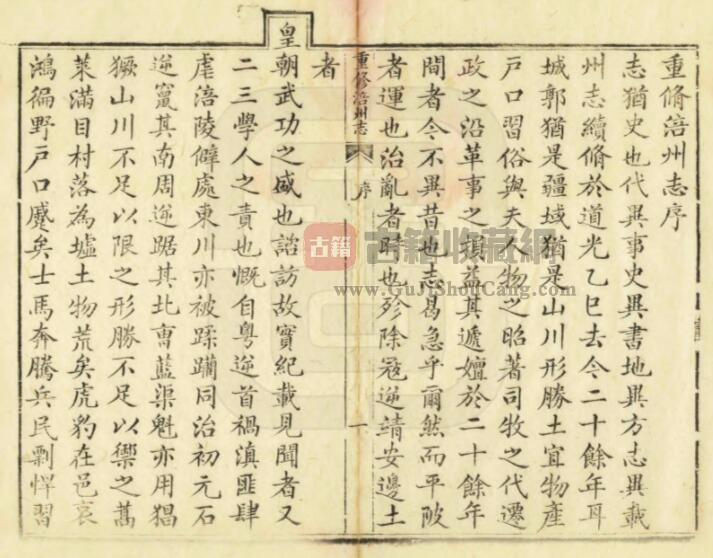 重脩涪州志序
志猶史也代異事史異書地異方志異載
州志續脩於道光乙巳去今二十餘年耳
城郭猶是疆域猶是山川形勝土宜物產
戶口習俗與夫人物之昭著司牧之代遷
政之沿革事之損益其遞嬗於二十餘年
間者今不異昔也志曷急乎爾然而平陂
者運也治亂者時也殄除寇逆靖安邊土
者
重修涪州志
序
一
皇朝武功之盛也諮訪故實紀載見聞者又
二三學人之責也慨自粵逆首禍滇匪肆
虐涪陵僻處東川亦被蹂躪同治初元石
逆竄其南周逆踞其北曺藍渠魁亦用猖
獗山川不足以限之形勝不足以禦之蒿
萊滿目村落為墟土物荒矣虎豹在邑哀
鴻徧野戶口蹙矣士馬奔騰兵民剽悍習
古籍
古籍收藏網
www.GuJiShouCang.com